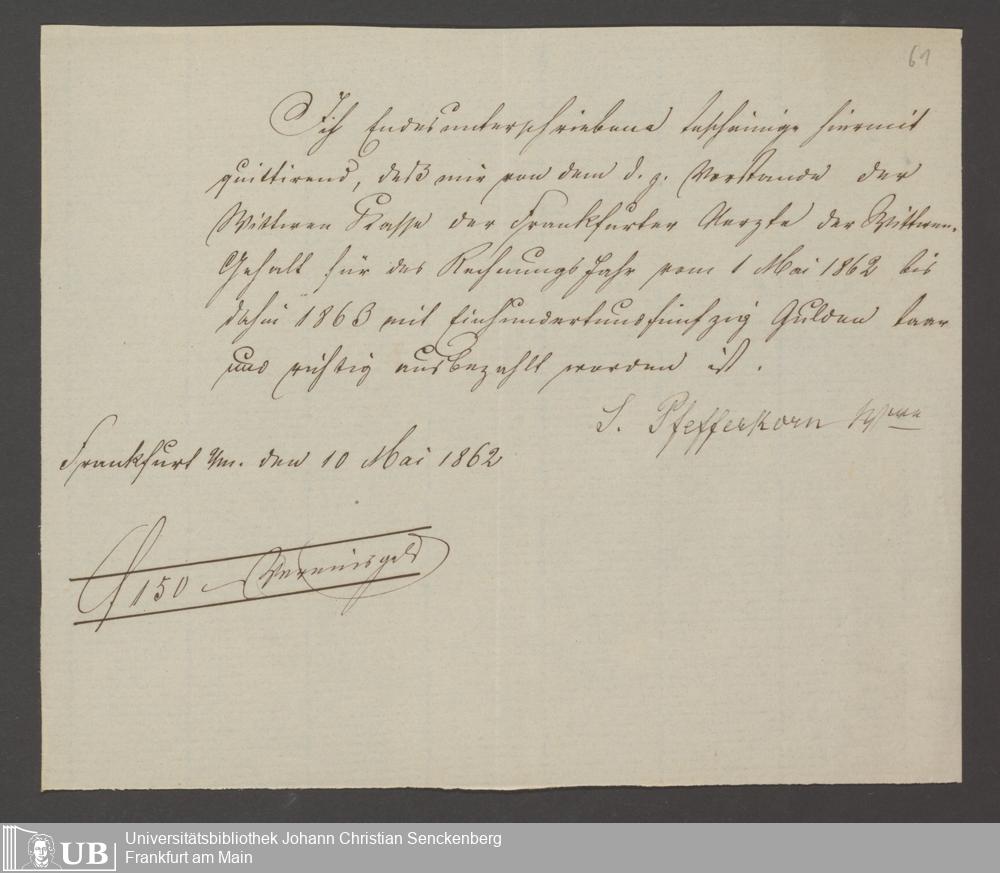 61
Ich Endesunterschriebene bescheinige hiermit
quittirend, daß mir von dem d. z. Vorstande der
Wittwen Kasse der Frankfurter Aerzte der Wittwen-
Gehalt für das Rechnungs Jahr vom 1 Mai 1862 bis
dahin 1863 mit Einhundertundfünfzig Gulden baar
und richtig ausbezahlt worden ist.
S. Pfefferkorn Wwe
Frankfurt a/m. den 10 Mai 1862
f 150 Vereinsgeld
UB Universitätsbibliothek Johann Christian Senckenberg
Frankfurt am Main